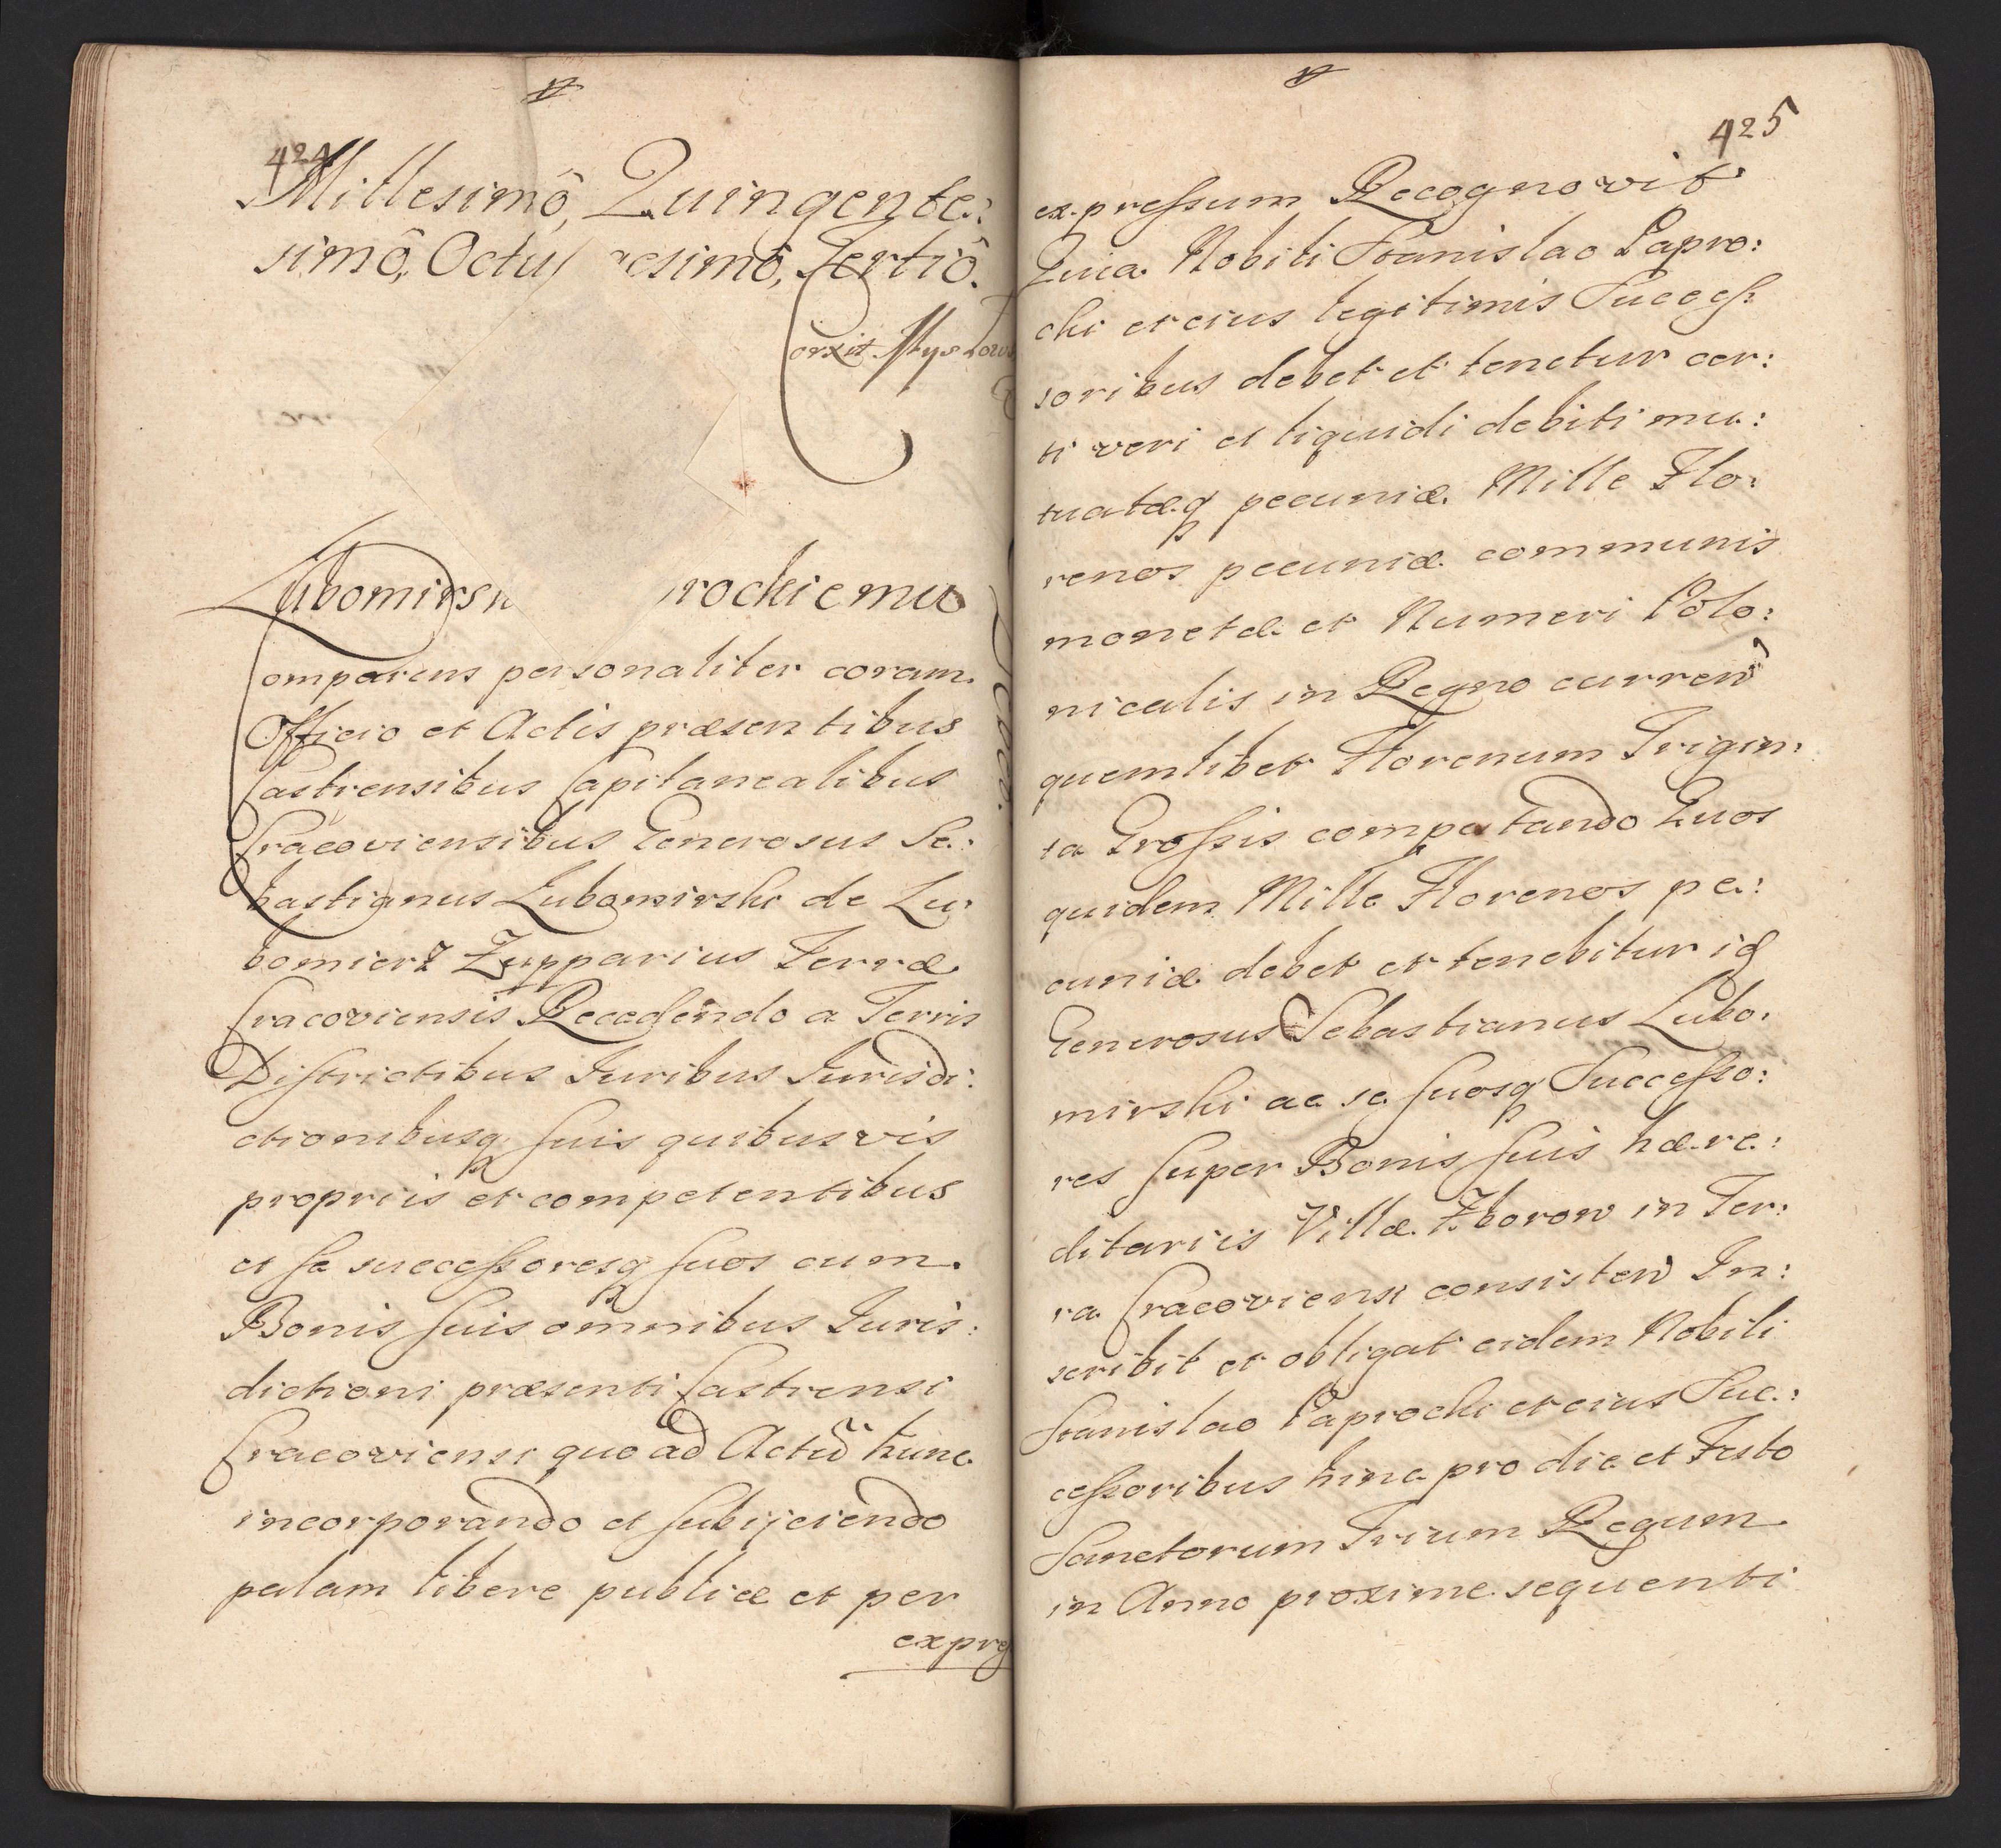 424
Millesimô, Quingente:
simô, Octu gesimô, Tertiô.
orxit
Lubomirs rockiemu
omparens personaliter coram
Officio et Actis præsentibus
Castrensibus Capitanealibus
Cracoviensibus Generosus Se:
bastianus Lubomirski de Lu:
bomierz Zupparius Terræ
Cracoviensis Recedendo a Terris
Districtibus Iuribus Iurisdi:
ctionibusq suis quibusvis
propriis et competentibus
et se successoresq suos cum
Bonis suis omnibus Iuris:
dictioni præsenti Castrensi
Cracoviensi quo ad Actũ hunc
incorporando et subijciendo
palam libere publicæ et per
expres
425
expressum Recognovit
Quia Nobili Stanislao Papro:
cki et eius legitimis Succes:
soribus debet et tenetur cer:
ti veri et liquidi debiti mu:
tuatæq pecuniæ Mille Flo:
renos pecuniæ communis
monetæ et Numeri Polo:
nicalis in Regno curren
quemlibet Florenum Trigin:
ta Grossis computando Quos
quidem Mille Florenos pe:
cuniæ debet et tenebitur id
Generosus Sebastianus Lubo:
mirski ac se suosq Successo:
res super Bonis suis hære:
ditariis Villæ Zborow in Ter:
ra Cracoviensi consisten In:
scribit et obligat eidem Nobili
Stanislao Paprocki et eius Suc:
cessoribus hinc pro die et Festo
Sanctorum Trium Regum
in Anno proxime sequenti